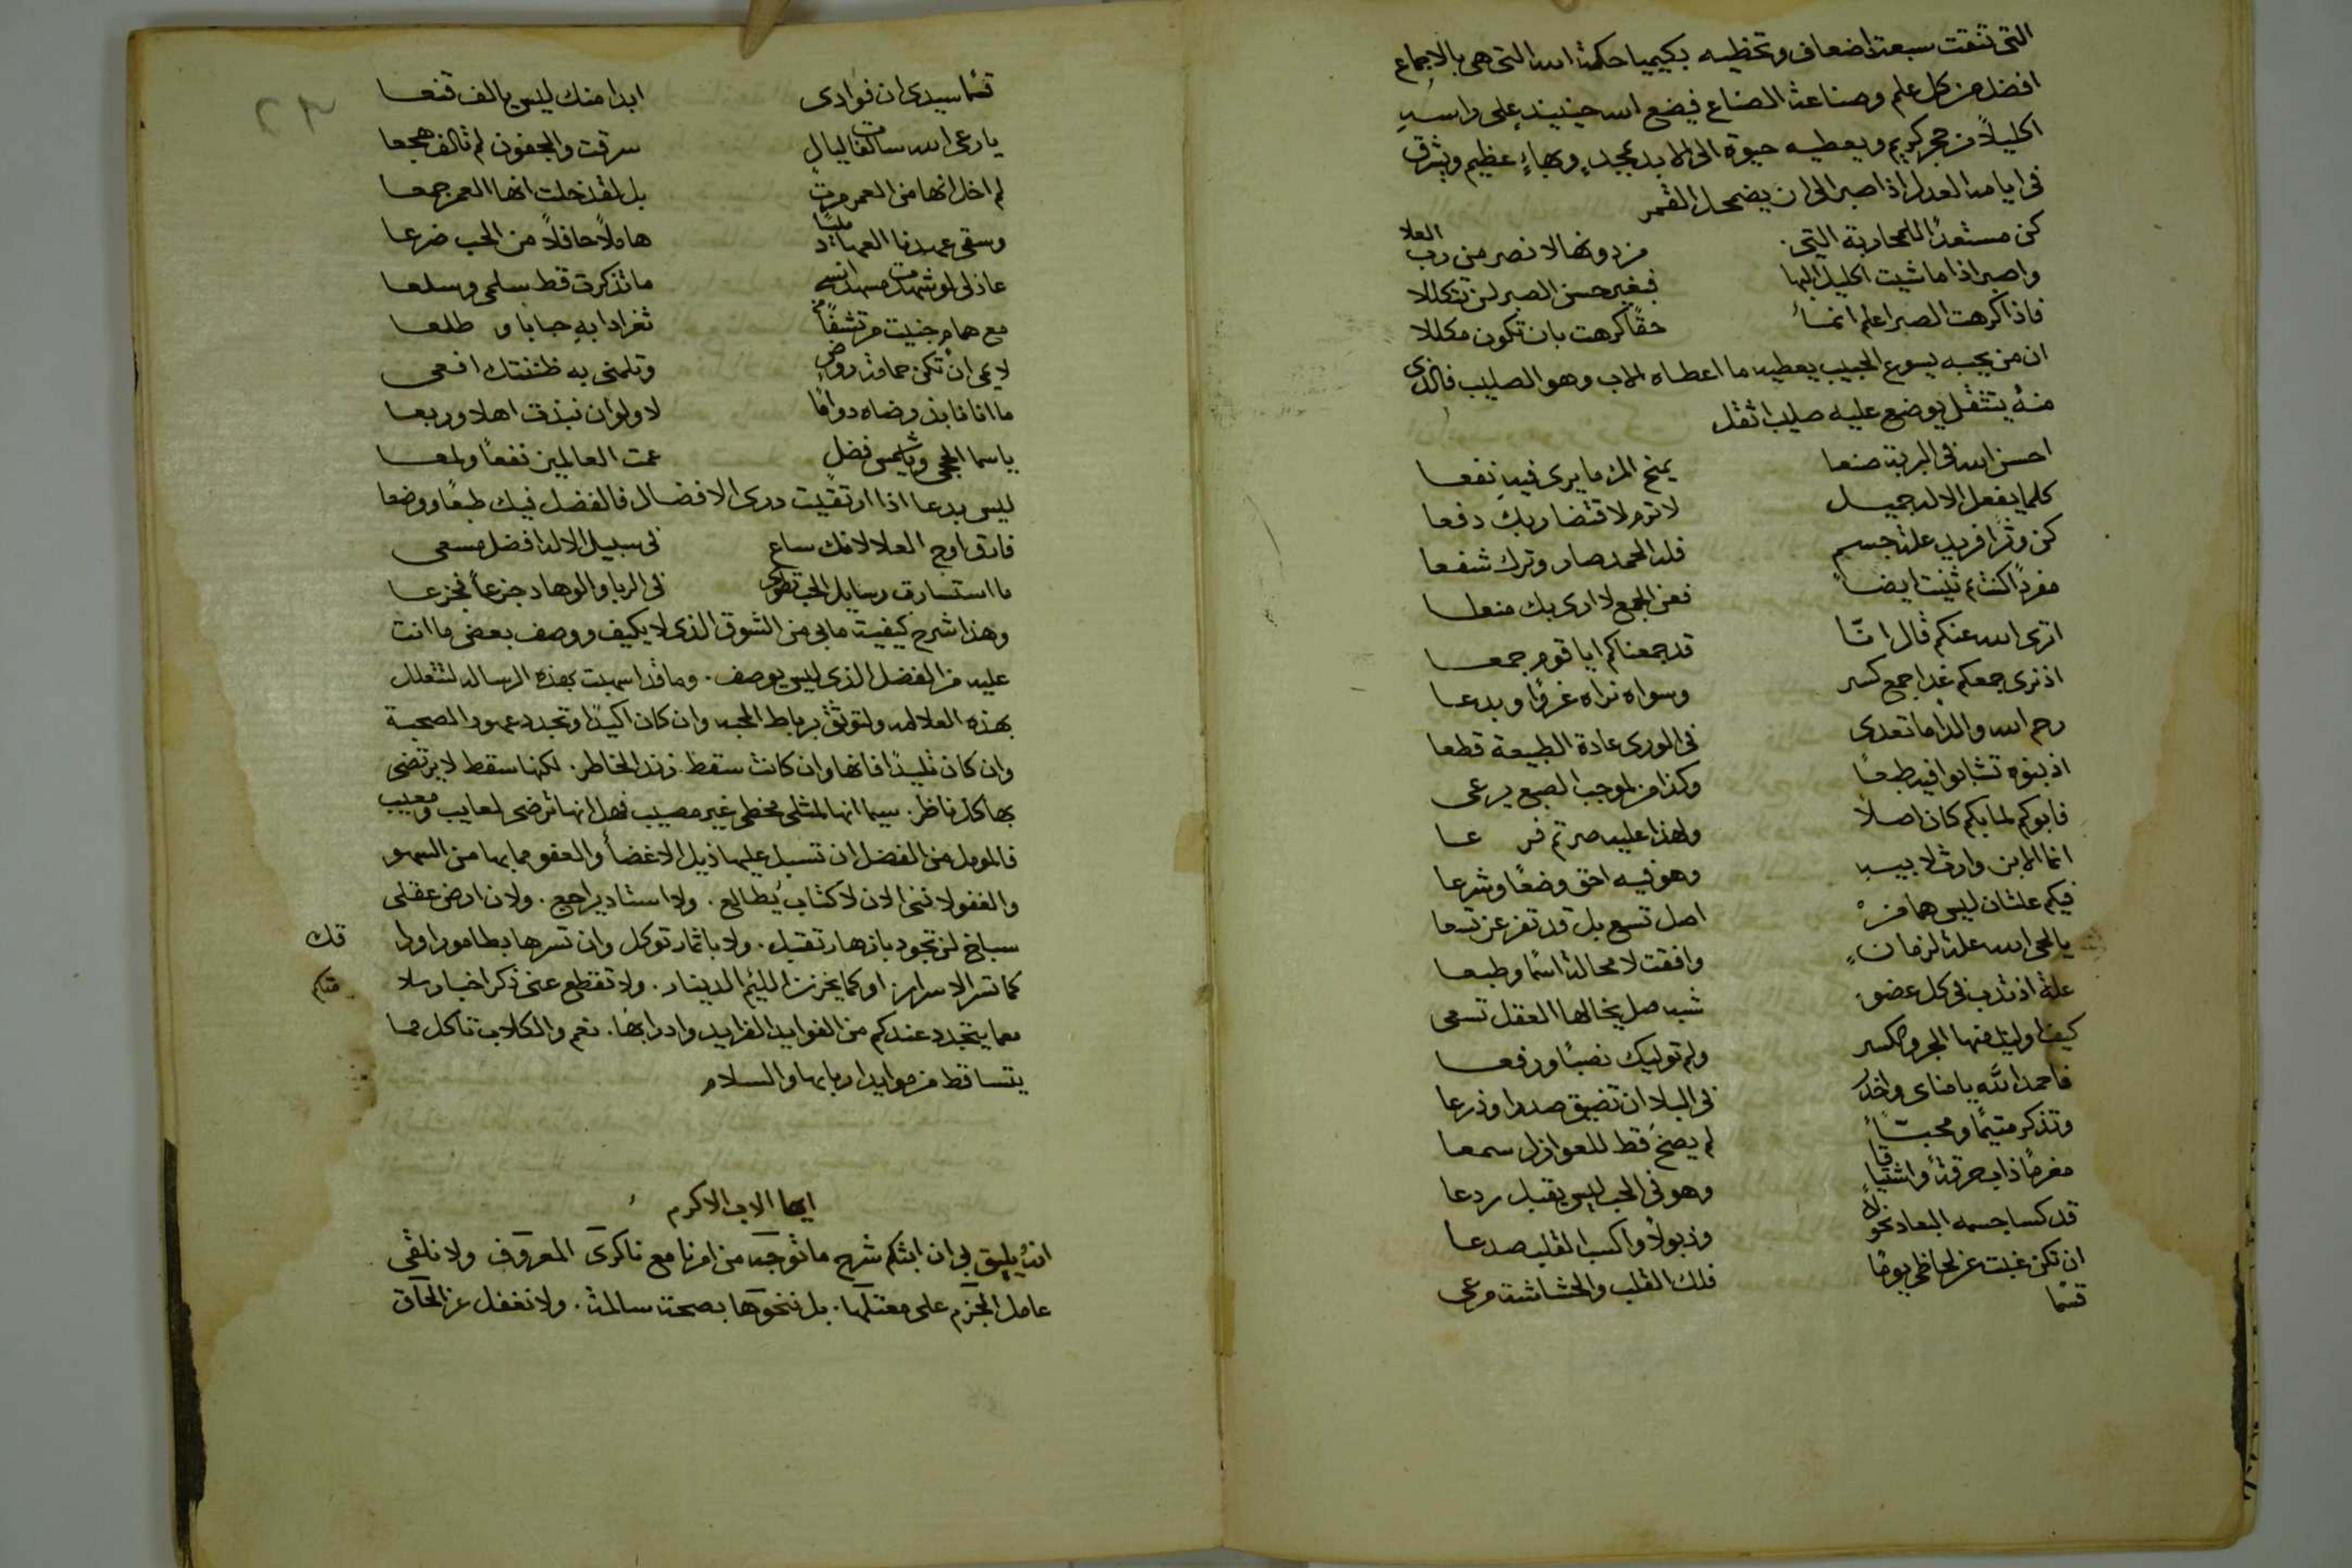 التى تنقت سبعة اضعاف وتحظيه بكيميا حكمة الله التى هى بالاجماع
افضل من كل علم وصناعة الصناع فيضع الله حينيندٍ على راسهِ
اكليلاً من حجر كريم ويعطيه حيوة الى الابد بمجدٍ وبهاءٍ عظيم ويشرق
فى ايامه العدل اذا صبر الى ان يضمحل القمر
كن مستعدًا للمحاربة التى من دونها لا نصر من رب العلا
واصبر اذا ما شيت اكليل البها فبغير حسن الصبر لن تتكللا
فاذا كرهت الصبر اعلم انماَ حقًا كرهت بان تكون مكللا
ان من يحبه يسوع الحبيب يعطيه ما اعطاه الاب وهو الصليب فالذى
منهُ يتثقل يوضع عليه صليب اثقل
احسن الله فى البرية صنعا يمنح المرء ما يرى فيهِ نفعا
كلما يفعل الاله جميل لا ترم لاقتضا ربك دفعا
كن وترًا فريد علة جسم فله الحمد صار وترك شفعا
مفردًا كنت ثم ثنيت ايضاً فعن الجمع لا ارى بك منعا
اترى الله عنكم قال انّا قد جمعناكم ايا قوم جمعا
اذ نرى جمعكم غدا جمع كسر وسواه نراه غرقًا وبدعا
رحم الله والدًا ما تعدى فى الورى عادة الطبيعة قطعا
اذ بنوه تشابهوا فيه طبعًا وكذا من لموجب الصبع يرعى
فابوكم لما بكم كان اصلاً ولهذا عليه صرتم فرعا
انما الابن وارث لابيه وهو فيه احق وضعًا وشرعا
فيكم علتان ليس هما من اصل تسع بل قد تفرعن تسعا
يا لحى الله علة لزمانٍ وافقت لا محالة اسمًا وطبعا
علة اذ تدب فى كل عضو شبه صل يخالها العقل تسعى
كيفما وليت فمنها الجر والكسر ولم توليك نصبًا ورفعا
فاحمد الله يا مناى واحذر فى البلا ان تضيق صدرا وذرعا
وتذكر متيمًا ومحبًّا لم يصخ قط للعوازل سمعا
مغرمًا ذاب حرقةً واشتياقا وهو فى الحب ليس يقبل ردعا
قد كسا جسمه البعاد نحولاً وذبولاً واكسب القلب صدعا
ان تكن غبت عن لحاظى يومًا فلك القلب والحشاشة مرعى
قسما
قسما سيدى ان فوادى ابدا منك ليس بالف قنعا
يا رعى الله سالفات ليالٍ سرقت والجفون لم تالف هجعا
لم اخل انها من العمر مرت بل لقد خلت انها العمر جمعا
وسقى عهدنا العهاد ملثًا هاملاً حافلاً من الحب ضرعا
عاذلى لو شهدت مشهد انسى ما تذكرت قط سلمى وسلعا
مع همام جنيت مرتشفًا من ثغر ادابهِ حبابا و طلعا
لايمى ان تكن حمامة روضٍ وتلمنى به ظننتك افعى
ما انا نابذ رضاه دوامًا لا ولو ان نبذت اهلا وربعا
يا سما الحجى وشمس فضل عمت العالمين نفعًا ولمعا
ليس بدعا اذا ارتقيت درى الافضال فالفضل فيك طبعًا ووضعا
فارق اوج العلا لانك ساع فى سبيل الاله افضل مسعى
ما استسارت رسايل الحب تطوى فى الربا والوهاد جزعاً فجزعا
وهذا شرح كيفية ما بى من الشوق الذى لا يكيف ووصف بعض ما انت
عليه من الفضل الذى ليس يوصف. وما قد اسهبت بهذه الرساله لتتعلل
بهذه العلاله ولتوثق برباط المحبه وان كان اكيدًا وتجدد عهود الصحبة
وان كان تليدًا فانها وان كانت سقط زند الخاطر. لكنها سقط لا يرتضى
بها كل ناظر. سيما انها لمثلى مخطى غير مصيب فهل انها ترضى لعايب ومعيب
فالمومل من الفضل ان تسبل عليها ذيل الاغضآ والعفو مما بها من السهو
والغفو لاننى الان لا كتاب يُطالع. ولا استاد يراجع. ولان ارض عقلى
سباخ لن تجود بازهار تقبل. ولا باثمار توكل وان تسرها بطامورا ودا
قك
كما تسر الاسرار او كما يخزن اللئيم الدينار. ولا تقطع عنى ذكر اخبار سلا
متكم
مما يتجدد عندكم من الفوايد الفرايد وادابها. نعم والكلاب تاكل مما
يتساقط من موايد اربابها والسلام
ايها الاب الاكرم
انهُ يليق بى ان ابثكم شرح ما توجه من امرنا مع ناكرى المعروف ولا نلقى
عامل الجزم على معتلها. بل ننحوها بصحة سالمة. ولا نغفل عن الحاق